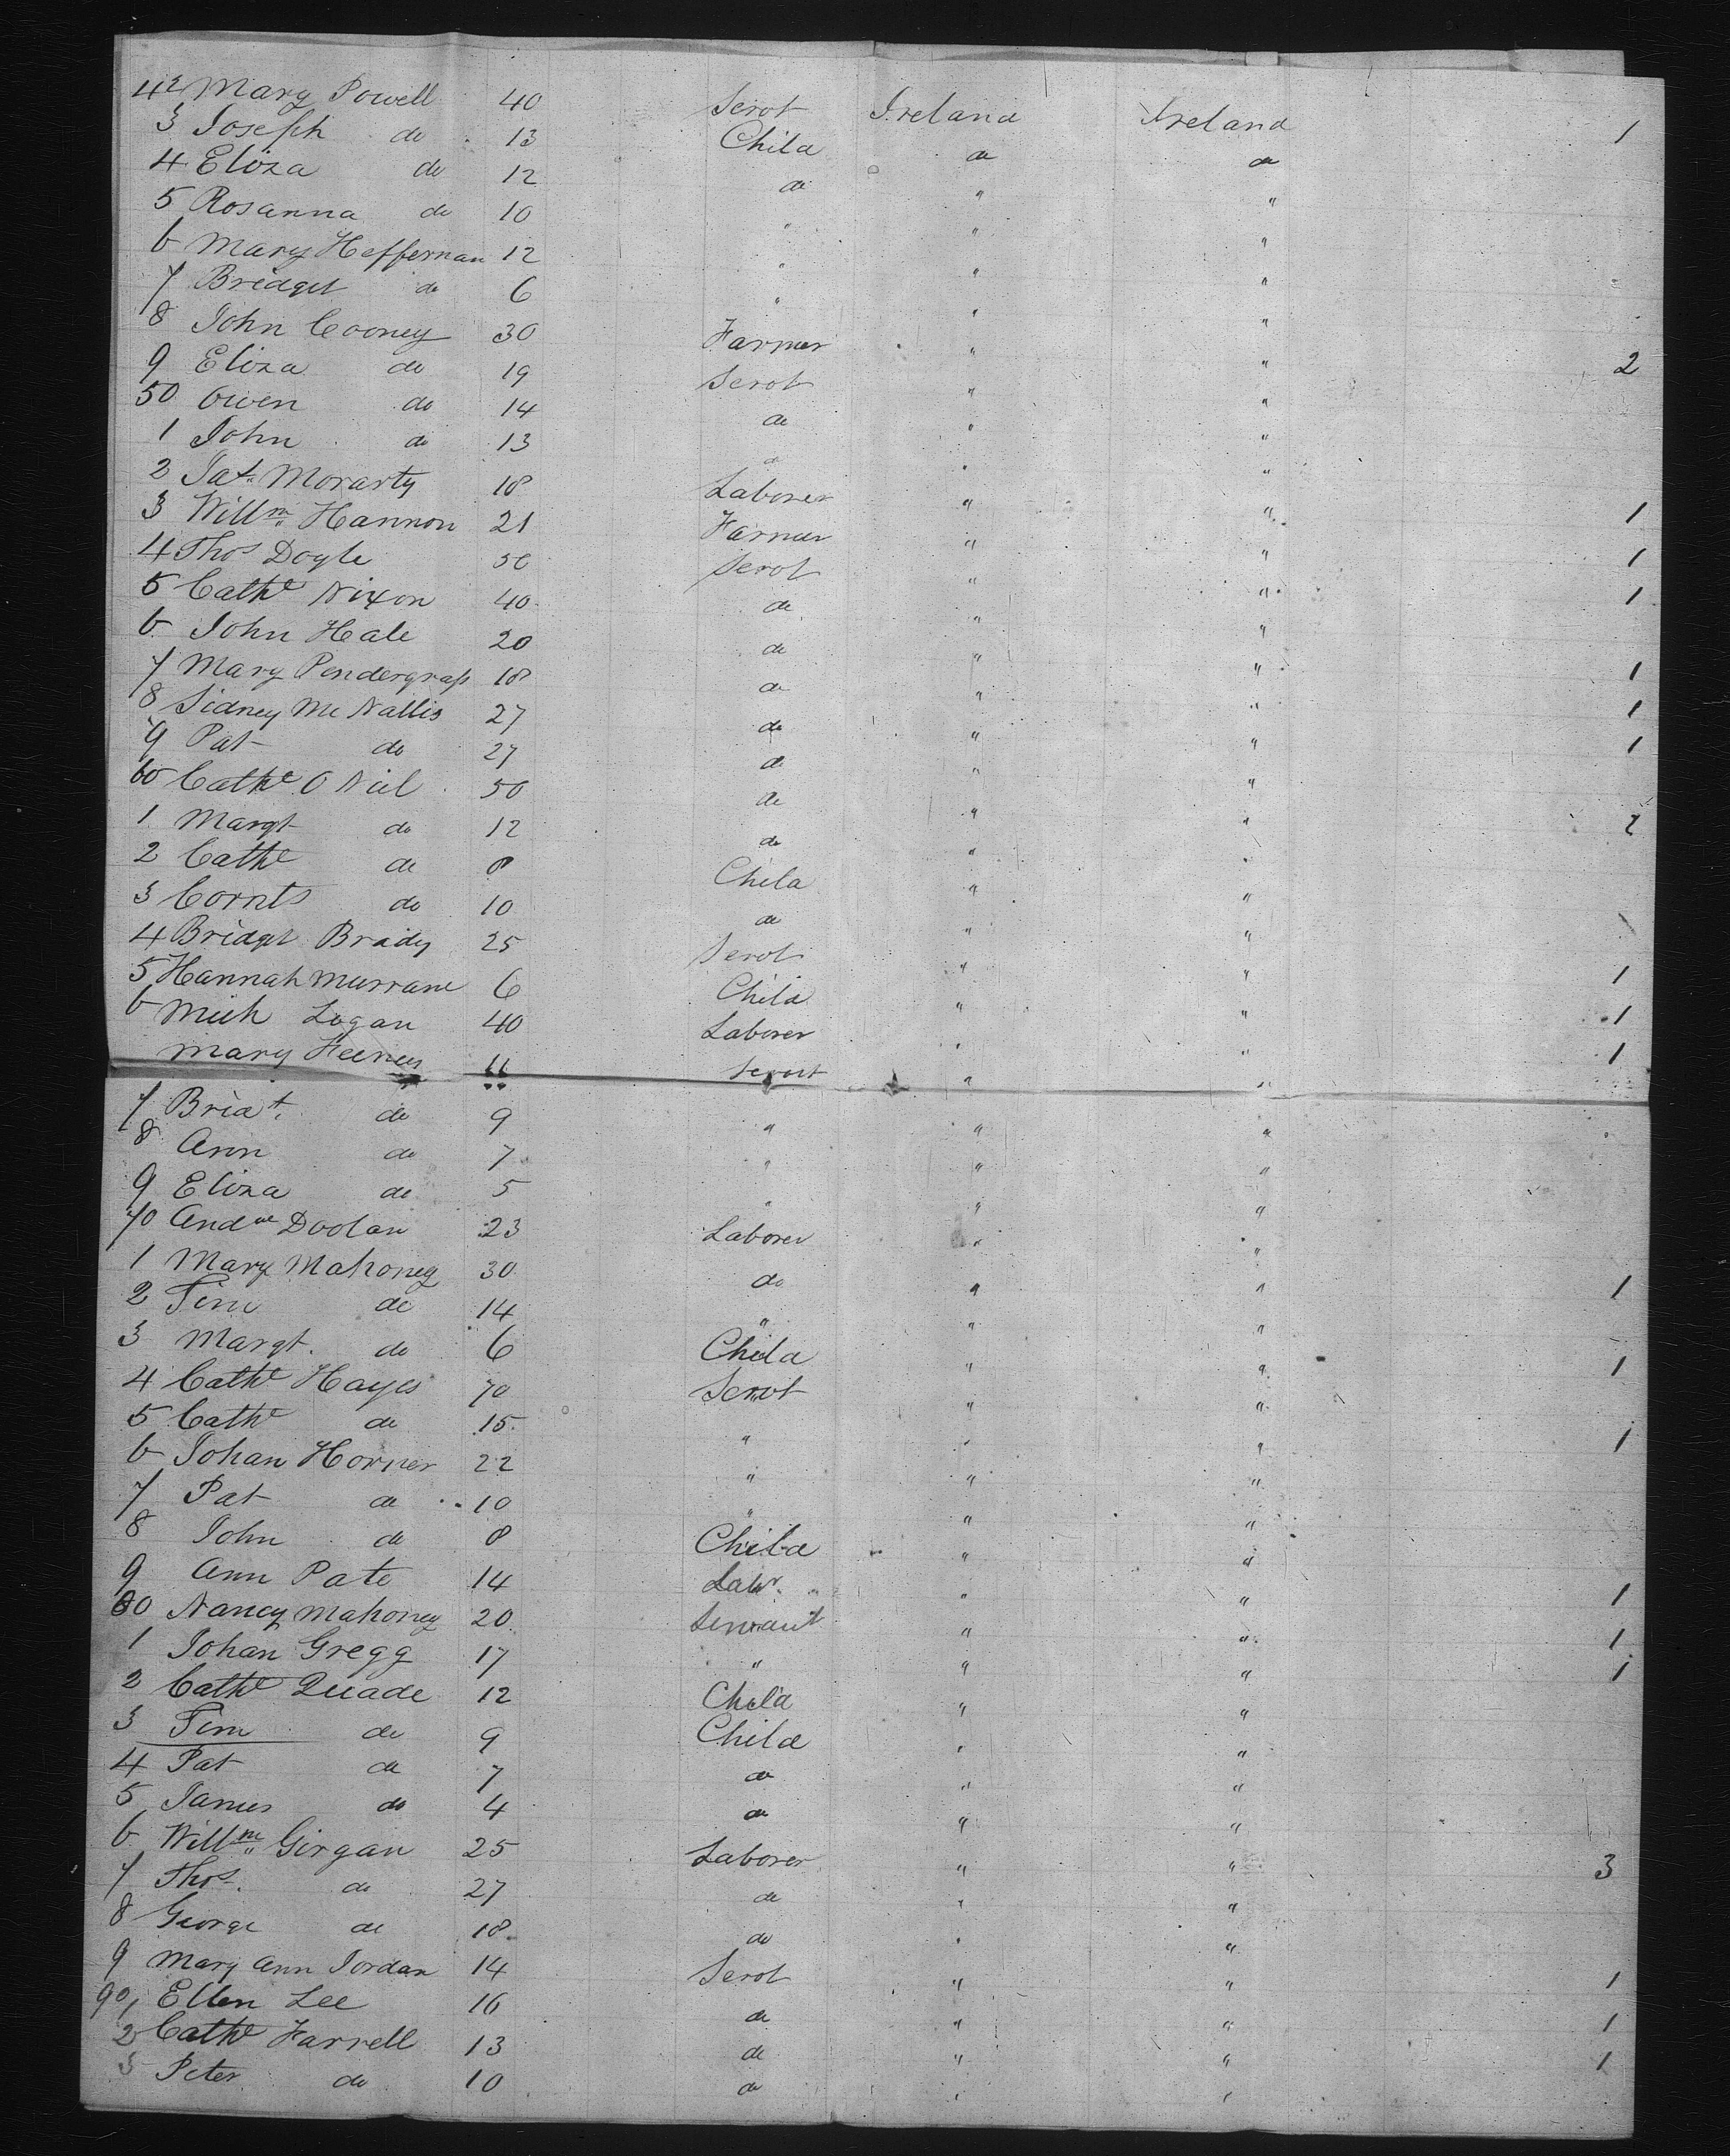 42 Mary Powell 40 Servt Ireland Ireland 1
3 Joseph do 13 Child do do
4 Eliza do 12 do " "
5 Rosanna do 10 " " "
6 Mary Heffernan 12 " " "
7 Bridget do 6 " " "
8 John Cooney 30 Farmer " " 2
9 Eliza do 19 Servt " "
50 Owen do 14 do " "
1 John do 13 do " "
2 Pat Morarty 18 Laborer " " 1
3 Willm Hannon 21 Farmer " " 1
4 Thos Doyle 50 Servt " " 1
5 Cathe Nixon 40 do " "
6 John Hale 20 do " " 1
7 Mary Pendergrass 18 do " " 1
8 Sidney Mc Nallis 27 do " " 1
9 Pat do 27 do " "
60 Cathe O Neil 50 do " " 2
1 Margt do 12 do " "
2 Cathe do 8 Child " "
3 Cornls do 10 do " "
4 Bridget Brady 25 Servt " " 1
5 Hannah Murrane 6 Child " " 1
6 Mich Logan 40 Laborer " " 1
Mary Feeney 11 Servt " "
7 Bridt. do 9 " " "
8 Ann do 7 " " "
9 Eliza do 5 " " "
70 Andw Doolan 23 Laborer " "
1 Mary Mahoney 30 do " " 1
2 Tim do 14 " " "
3 Margt. do 6 Child " " 1
4 Cathe Hayes 70 Servt " "
5 Cathe do 15 " " " 1
6 Johan Horner 22 " " "
7 Pat do 10 " " "
8 John do 8 Child " "
9 Ann Pate 14 Labr " " 1
80 Nancy Mahoney 20 Servant " " 1
1 Johan Gregg 17 " " " 1
2 Cathe Quade 12 Child " "
3 Tim do 9 Child " "
4 Pat do 7 do " "
5 James do 4 do " "
6 Willm Girgan 25 Laborer " " 3
7 Thos. do 27 do " "
8 George do 18 do " "
9 Mary Ann Jordan 14 Servt " " 1
90, Ellen Lee 16 do " " 1
2 Cathe Farrell 13 do " " 1
3 Peter do 10 do " "